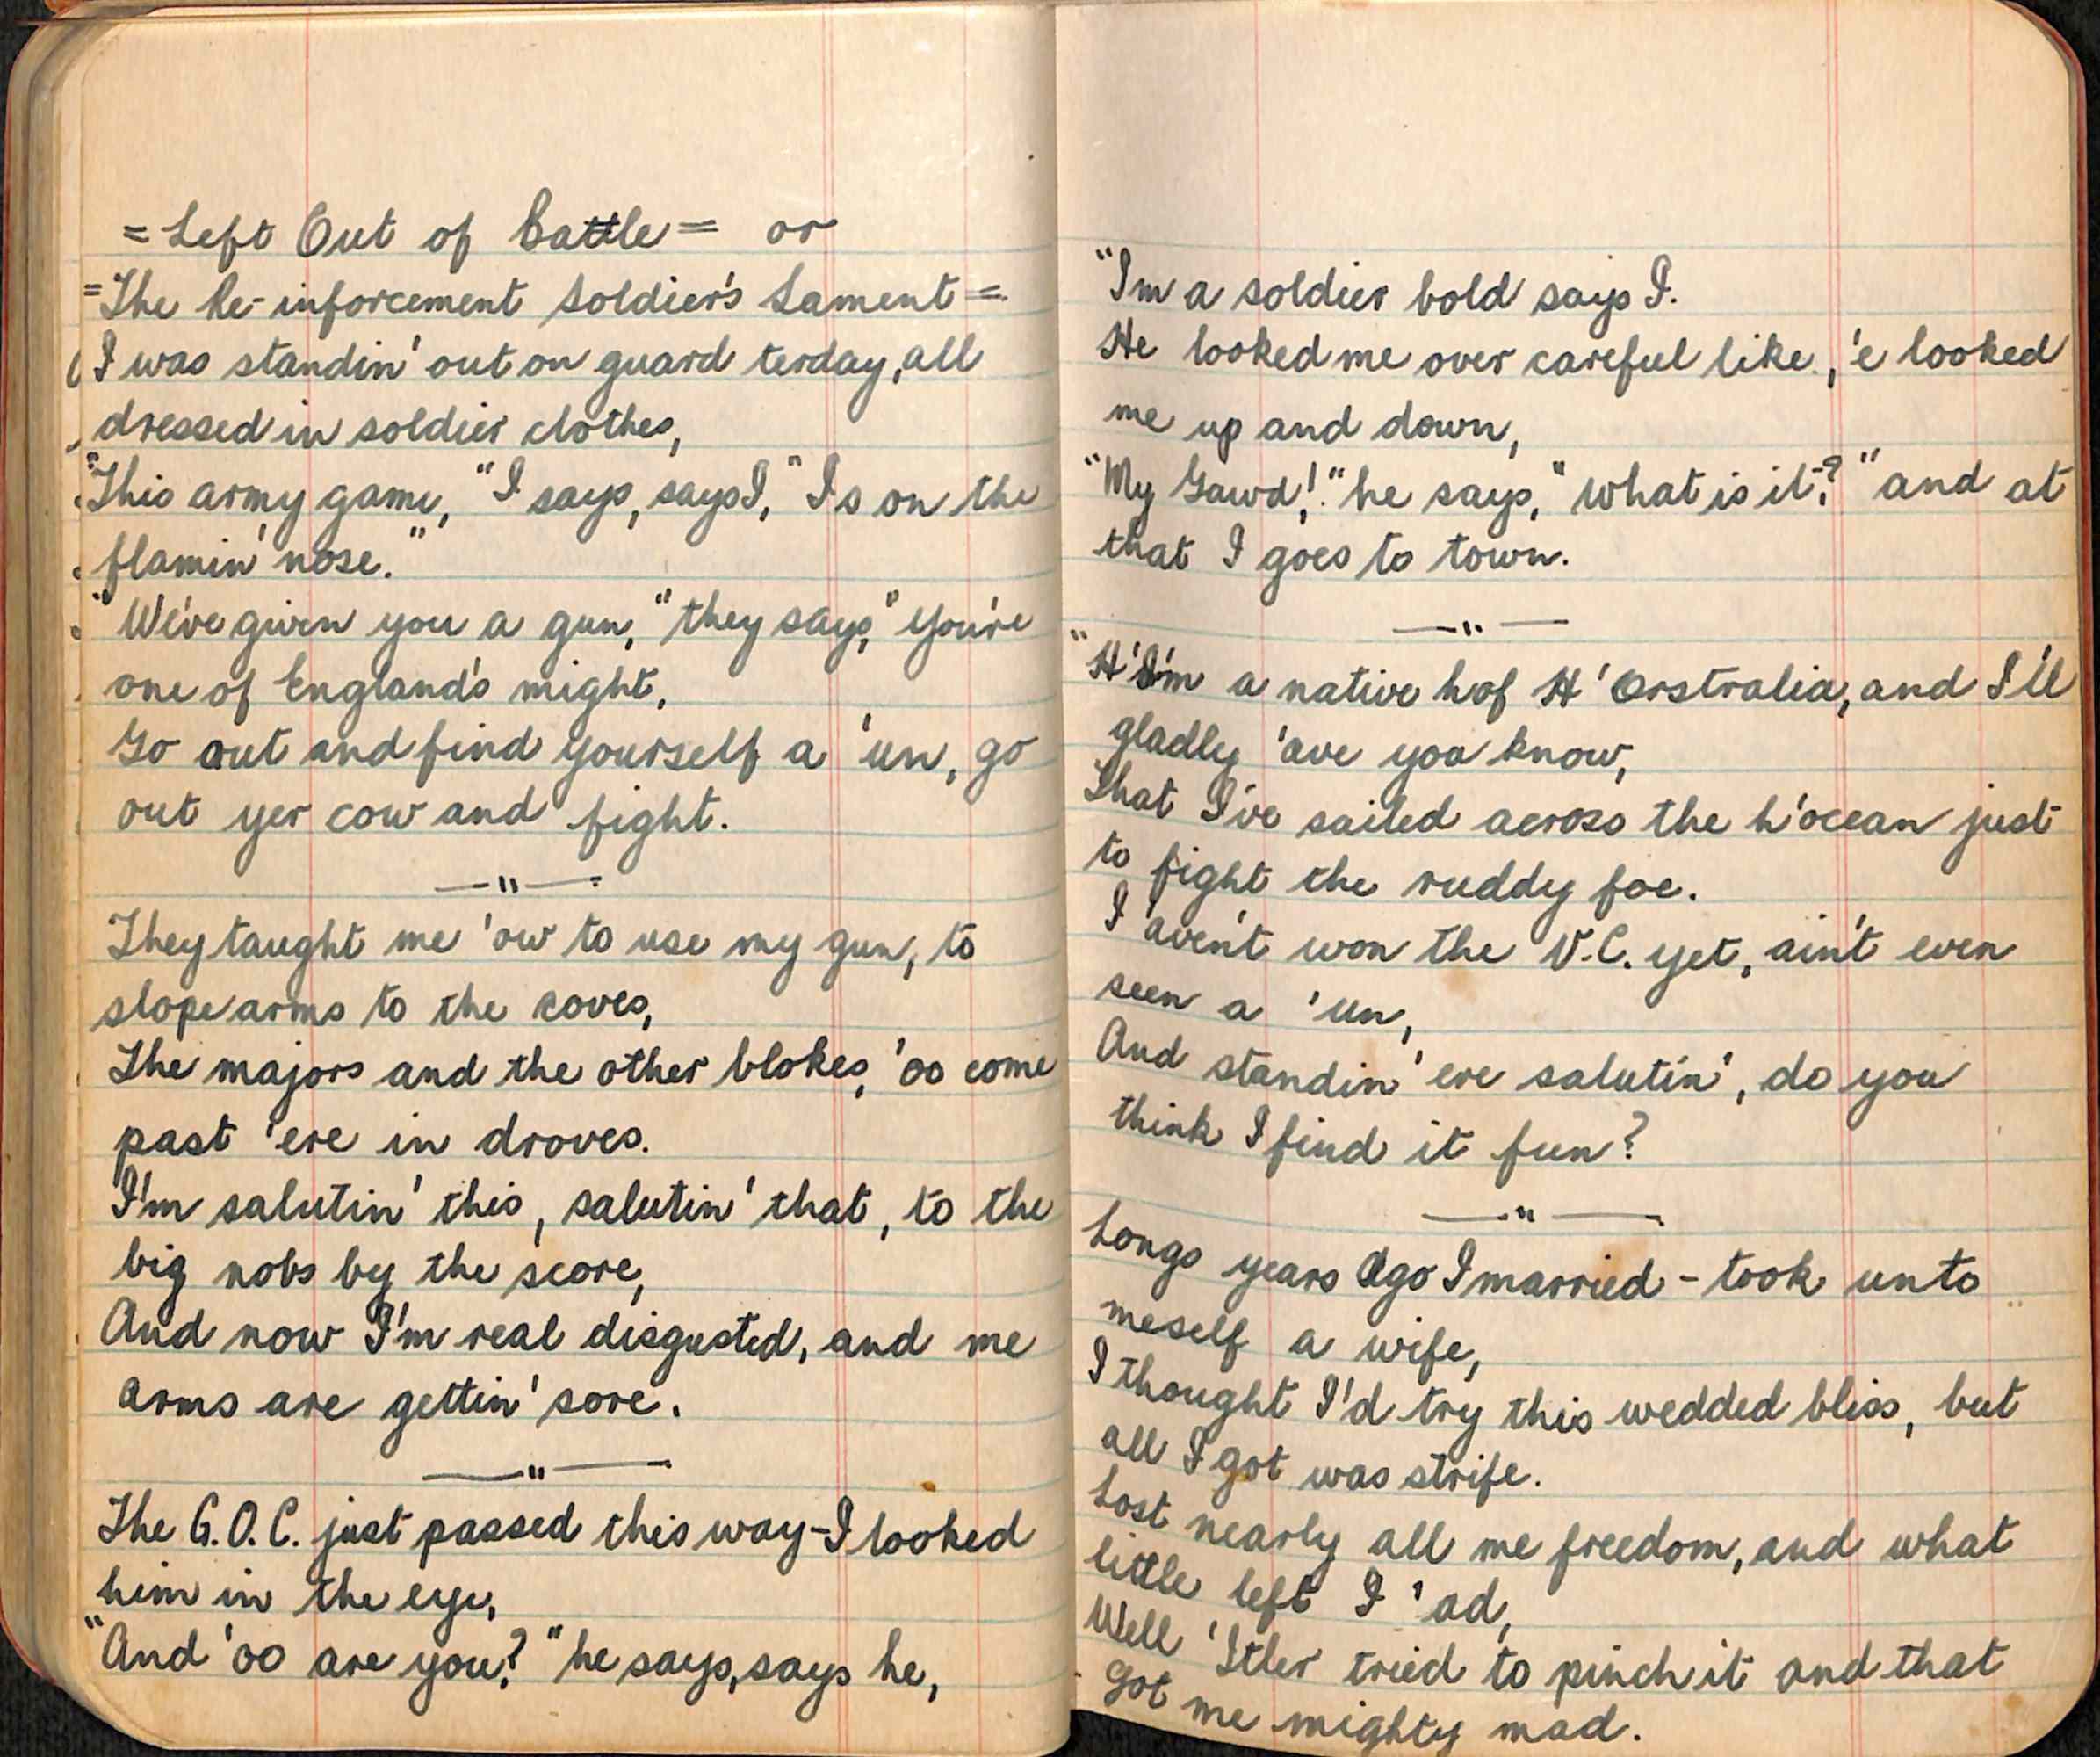 = Left Out of Battle = or
= The Re-inforcement Soldier's Lament =
I was standin' out on guard terday, all
dressed in soldier clothes,
"This army game, "I says, says I," Is on the
flamin' nose."
"We've given you a gun," they says, "You're
one of England's might,
Go out and find yourself a 'un, go
out yer cow and fight.
— " —
They taught me 'ow to use my gun, to
slope arms to the coves,
The majors and the other blokes, 'oo come
past 'ere in droves.
I'm salutin' this, salutin' that, to the
big nobs by the score,
And now I'm real disgusted, and me
arms are gettin' sore.
— " —
The G.O.C. just passed this way - I looked
him in the eye,
"And 'oo are you?" he says, says he,
"I'm a soldier bold says I.
He looked me over careful like, 'e looked
me up and down,
"My Gawd!" he says, "what is it?" and at
that I goes to town.
— " —
"H'I'm a native hof H'Orstralia, and I'll
gladly 'ave you know,
That I've sailed across the h'ocean just
to fight the ruddy foe.
I 'aven't won the V.C. yet, ain't even
seen a 'un,
And standin' 'ere salutin', do you
think I find it fun?
— " —
Longs years ago I married - took unto
meself a wife,
I thought I'd try this wedded bliss, but
all I got was strife.
Lost nearly all me freedom, and what
little left I 'ad,
Well 'Itler tried to pinch it and that
got me mighty mad.